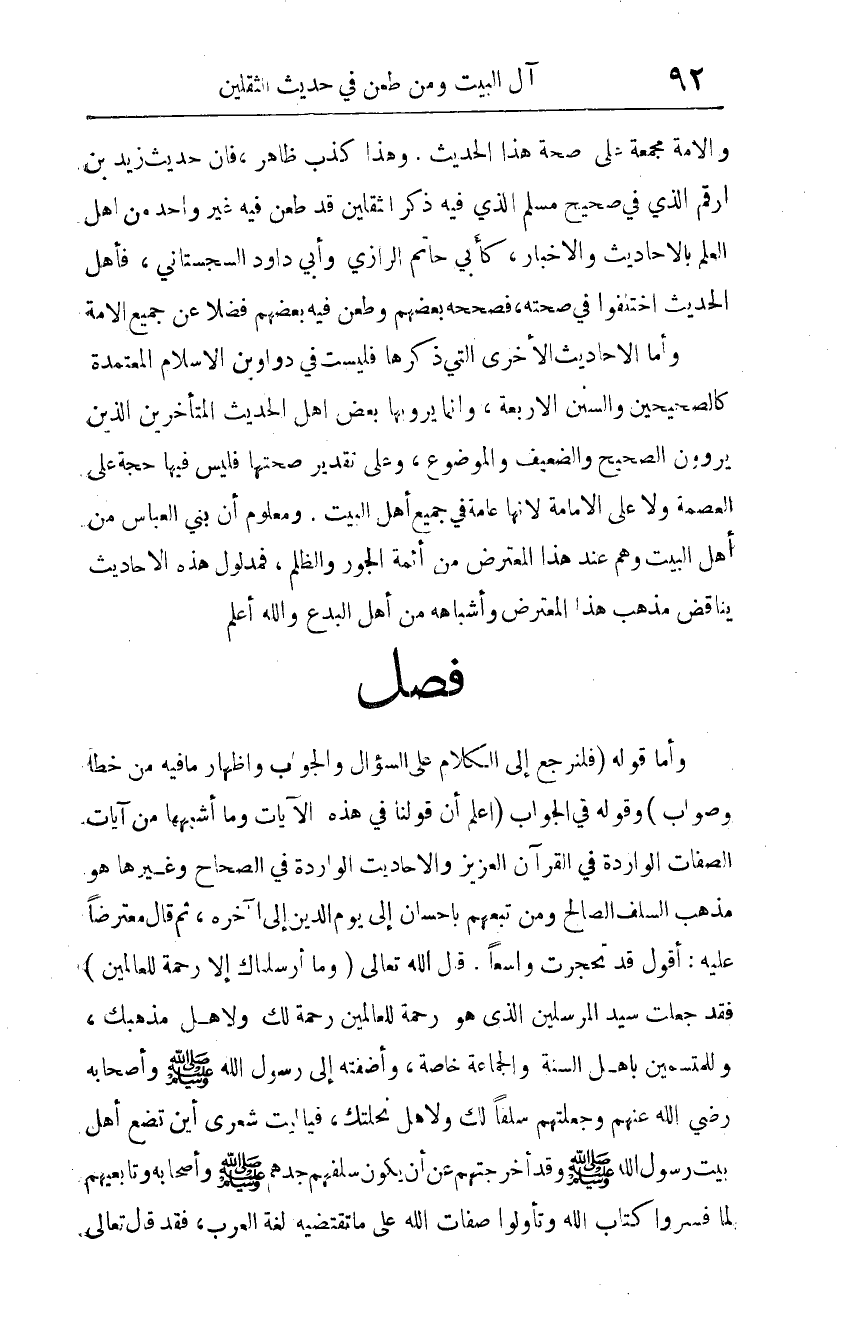 ٩٢
آل البيت ومن طعن في حديث الثقلين
والامة مجمعة على صحة هذا الحديث . وهذا كذب ظاهر ، فان حديث زيد بن
ارقم الذي في صحيح مسلم الذي فيه ذكر الثقلين قد طعن فيه غير واحد من اهل
العلم بالاحاديث والاخبار ، كأبي حاتم الرازي وأبي داود السجستاني ، فأهل
الحديث اختلفوا في صحته، فصححه بعضهم وطعن فيه بعضهم فضلا عن جميع الامة
وأما الاحاديث الأخرى التي ذكرها فليست في دواوين الاسلام المعتمدة
كالصحيحين والسنن الاربعة ، وانما يرويها بعض اهل الحديث المتأخرين الذين
يروون الصحيح والضعيف والموضوع ، وعلى تقدير صحتها فليس فيها حجة على
العصمة ولا على الامامة لانها عامة في جميع أهل البيت . ومعلوم أن بني العباس من
أهل البيت وهم عند هذا المعترض من أئمة الجور والظلم ، فمدلول هذه الاحاديث
يناقض مذهب هذا المعترض وأشباهه من أهل البدع والله أعلم
فصل
وأما قوله (فلنرجع إلى الكلام على السؤال والجواب واظهار مافيه من خطه
وصواب ) وقوله في الجواب (اعلم أن قولنا في هذه الآيات وما أشبهها من آيات
الصفات الواردة في القرآن العزيز والاحاديث الواردة في الصحاح وغيرها هو
مذهب السلف الصالح ومن تبعهم باحسان إلى يوم الدين إلى آخره ، ثم قال معترضاً
عليه : أقول قد تحجرت واسعاً . قال الله تعالى ( وما أرسلناك إلا رحمة للعالمين )
فقد جعلت سيد المرسلين الذى هو رحمة للعالمين رحمة لك ولاهل مذهبك ،
وللمتسمين باهل السنة والجماعة خاصة ، وأضفته إلى رسول الله ﷺ وأصحابه
رضي الله عنهم وجعلتهم سلفاً لك ولاهل نحلتك ، فياليت شعرى أين تضع أهل
بيت رسول الله ﷺ وقد أخرجتهم عن أن يكون سلفهم جدهم ﷺ وأصحابه وتابعيهم
لما فسروا كتاب الله وتأولوا صفات الله على ماتقتضيه لغة العرب، فقد قال تعالى